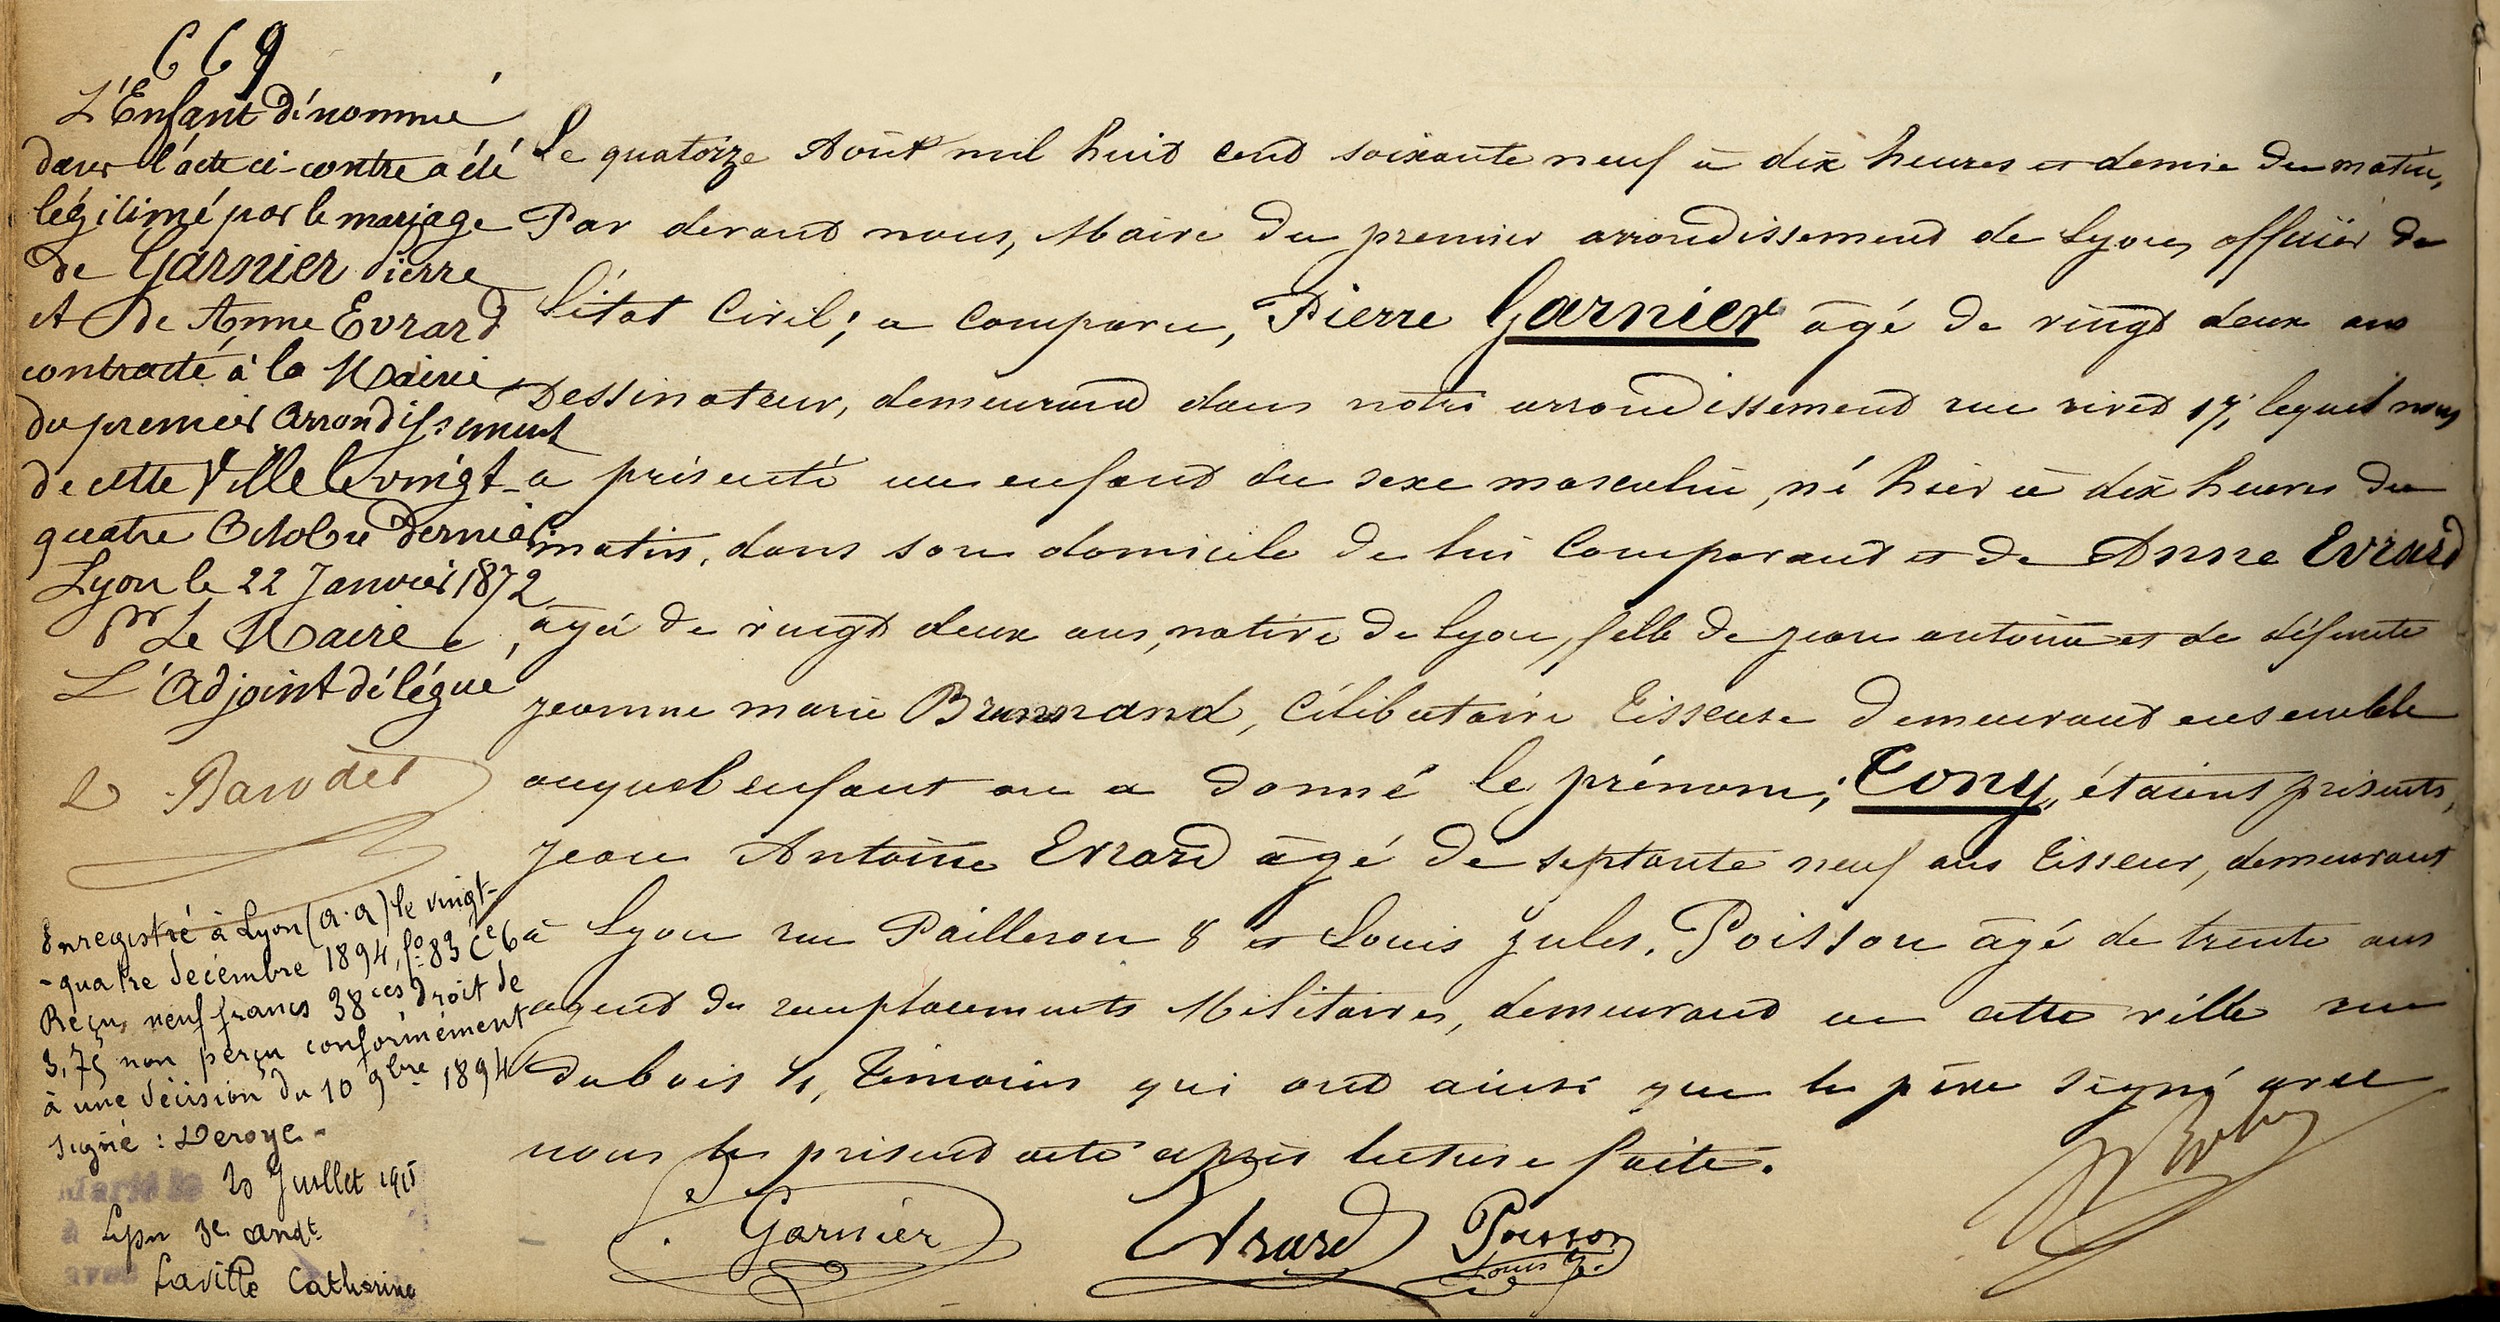 669
L'Enfant dénommé
dans l'acte ci-contre a été
légitimé par le mariage
de Garnier Pierre
et De Anne Evrard
contracté à la Mairie
du premier Arrondissement
de cette Ville le vingt-
quatre Octobre Dernier
Lyon le 22 Janvier 1872
Pr Le Maire,
L'Adjoint délégué
D Barodet
Enregistré à Lyon (a.a) le vingt-
-quatre décembre 1894, fo 83 Ce 6
Reçu neuf francs 38 ces droit de
3,75 non perçu conformément
à une décision du 10 9bre 1894
signé : Deroye -
Marié le 20 Juillet 1915
à Lyon 3e arrdt
avec Laville Catherine
Le quatorze Août mil huit cent soixante neuf à dix heures et demie du matin,
Par devant nous, Maire du premier arrondissement de Lyon, officier de
l'état Civil; a comparu, Pierre Garnier âgé de vingt deux ans
Dessinateur, demeurant dans notre arrondissement rue rivet 17, lequel nous
a présenté un enfant du sexe masculin, né hier à dix heures du
matin, dans son domicile de lui Comparant et de Anne Evrard
âgée de vingt deux ans, native de Lyon, fille de jean antoine et de défunte
jeanne marie, Célibataire tisseuse demeurant ensemble
auquel enfant on a donné le prénom; Tony, étaient présents,
jean Antoine Evrard âgé de septante neuf ans tisseur, demeurant
à Lyon rue Pailleron 8 et Louis jules. Poisson âgé de trente ans
agent de remplacements Militaires, demeurant en cette ville rue
dubois, témoins qui ont ainsi que le père signé avec
nous le présent acte après lecture faite.
Garnier
Evrard
Poisson
Louis J.